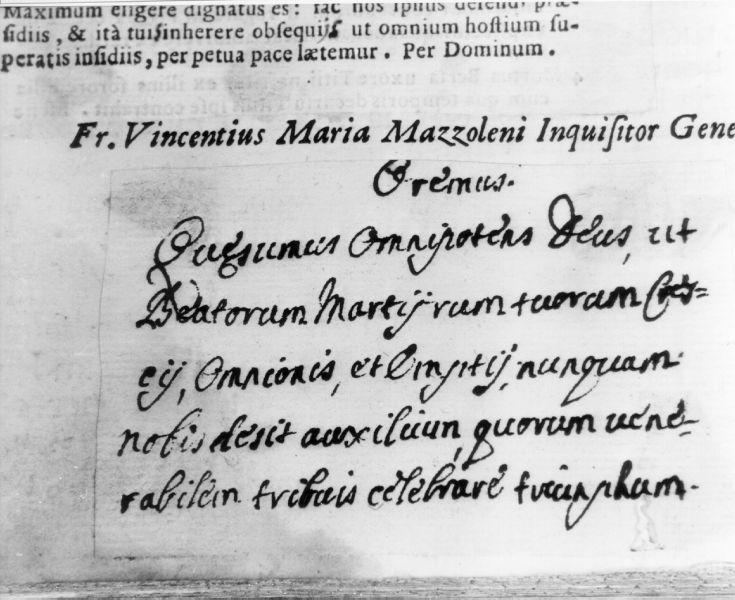 Maximum eligere dignatus es: fac nos ipsius defendi præ-
ſidiis, & ità tuiſinherere obſequijs ut omnium hoſtium ſu-
peratis inſidiis, per petua pace lætemur. Per Dominum.
Fr. Vincentius Maria Mazzoleni Inquiſitor Gene
Oremus.
Quęsumus Omnipotens Deus, ut
Beatorum Martijrum tuorum Cres=
cij, Omnionis, et Empitij, nunquam
nobis desit auxilium, quorum uene-
rabilem tribuis celebrare triumphum.